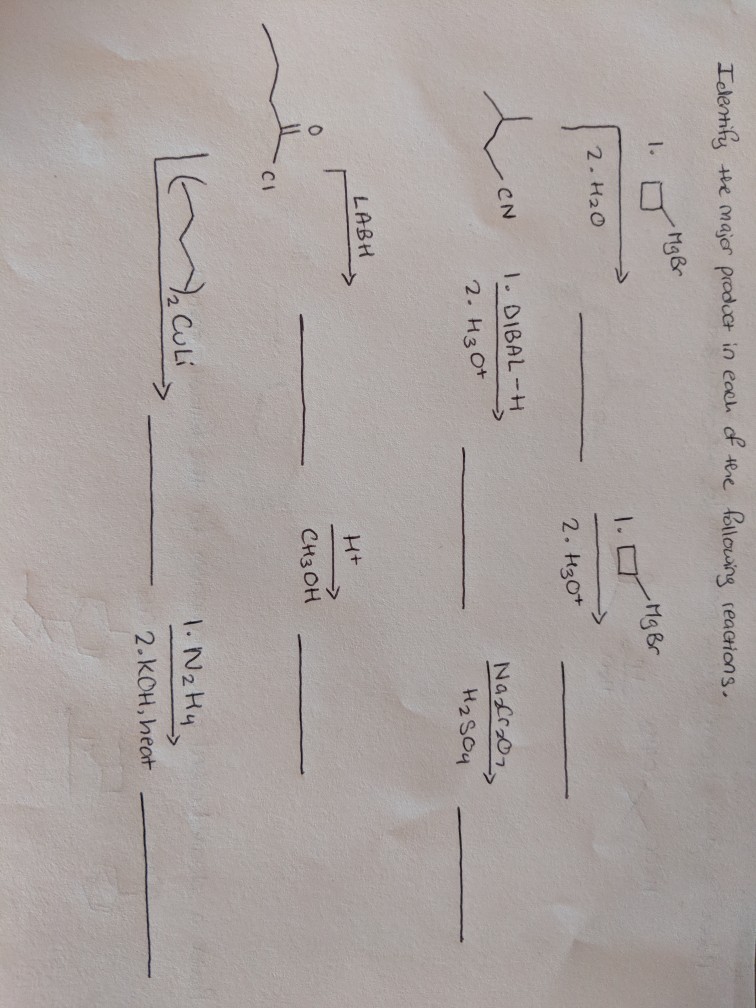 Identify the major product in each of the following reactions.
1. MgBr
2. H2O
1. MgBr
2. H3O+
CN
1. DIBAL-H
2. H3O+
Na2Cr2O7
H2SO4
O
Cl
LABH
H+
CH3OH
( )2CuLi
1. N2H4
2. KOH, heat